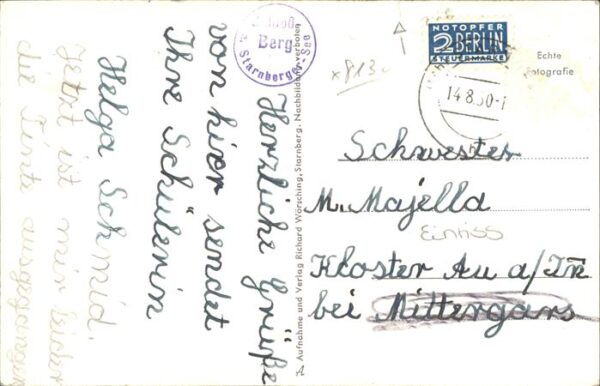 Herzliche Grüße
von hier sendet
Ihre Schülerin
Helga Schmid.
Jetzt ist mir leider
die Tinte ausgegangen
Schloß
Berg
a. Starnberger See
x813
A Aufnahme und Verlag Richard Wörsching, Starnberg. Nachbildung verboten
NOTOPFER
2 BERLIN
STEUERMARKE
Echte
Fotografie
14.8.50-1
Schwester
M. Majella
Einriss
Kloster Au a/Inn
bei Mittergars